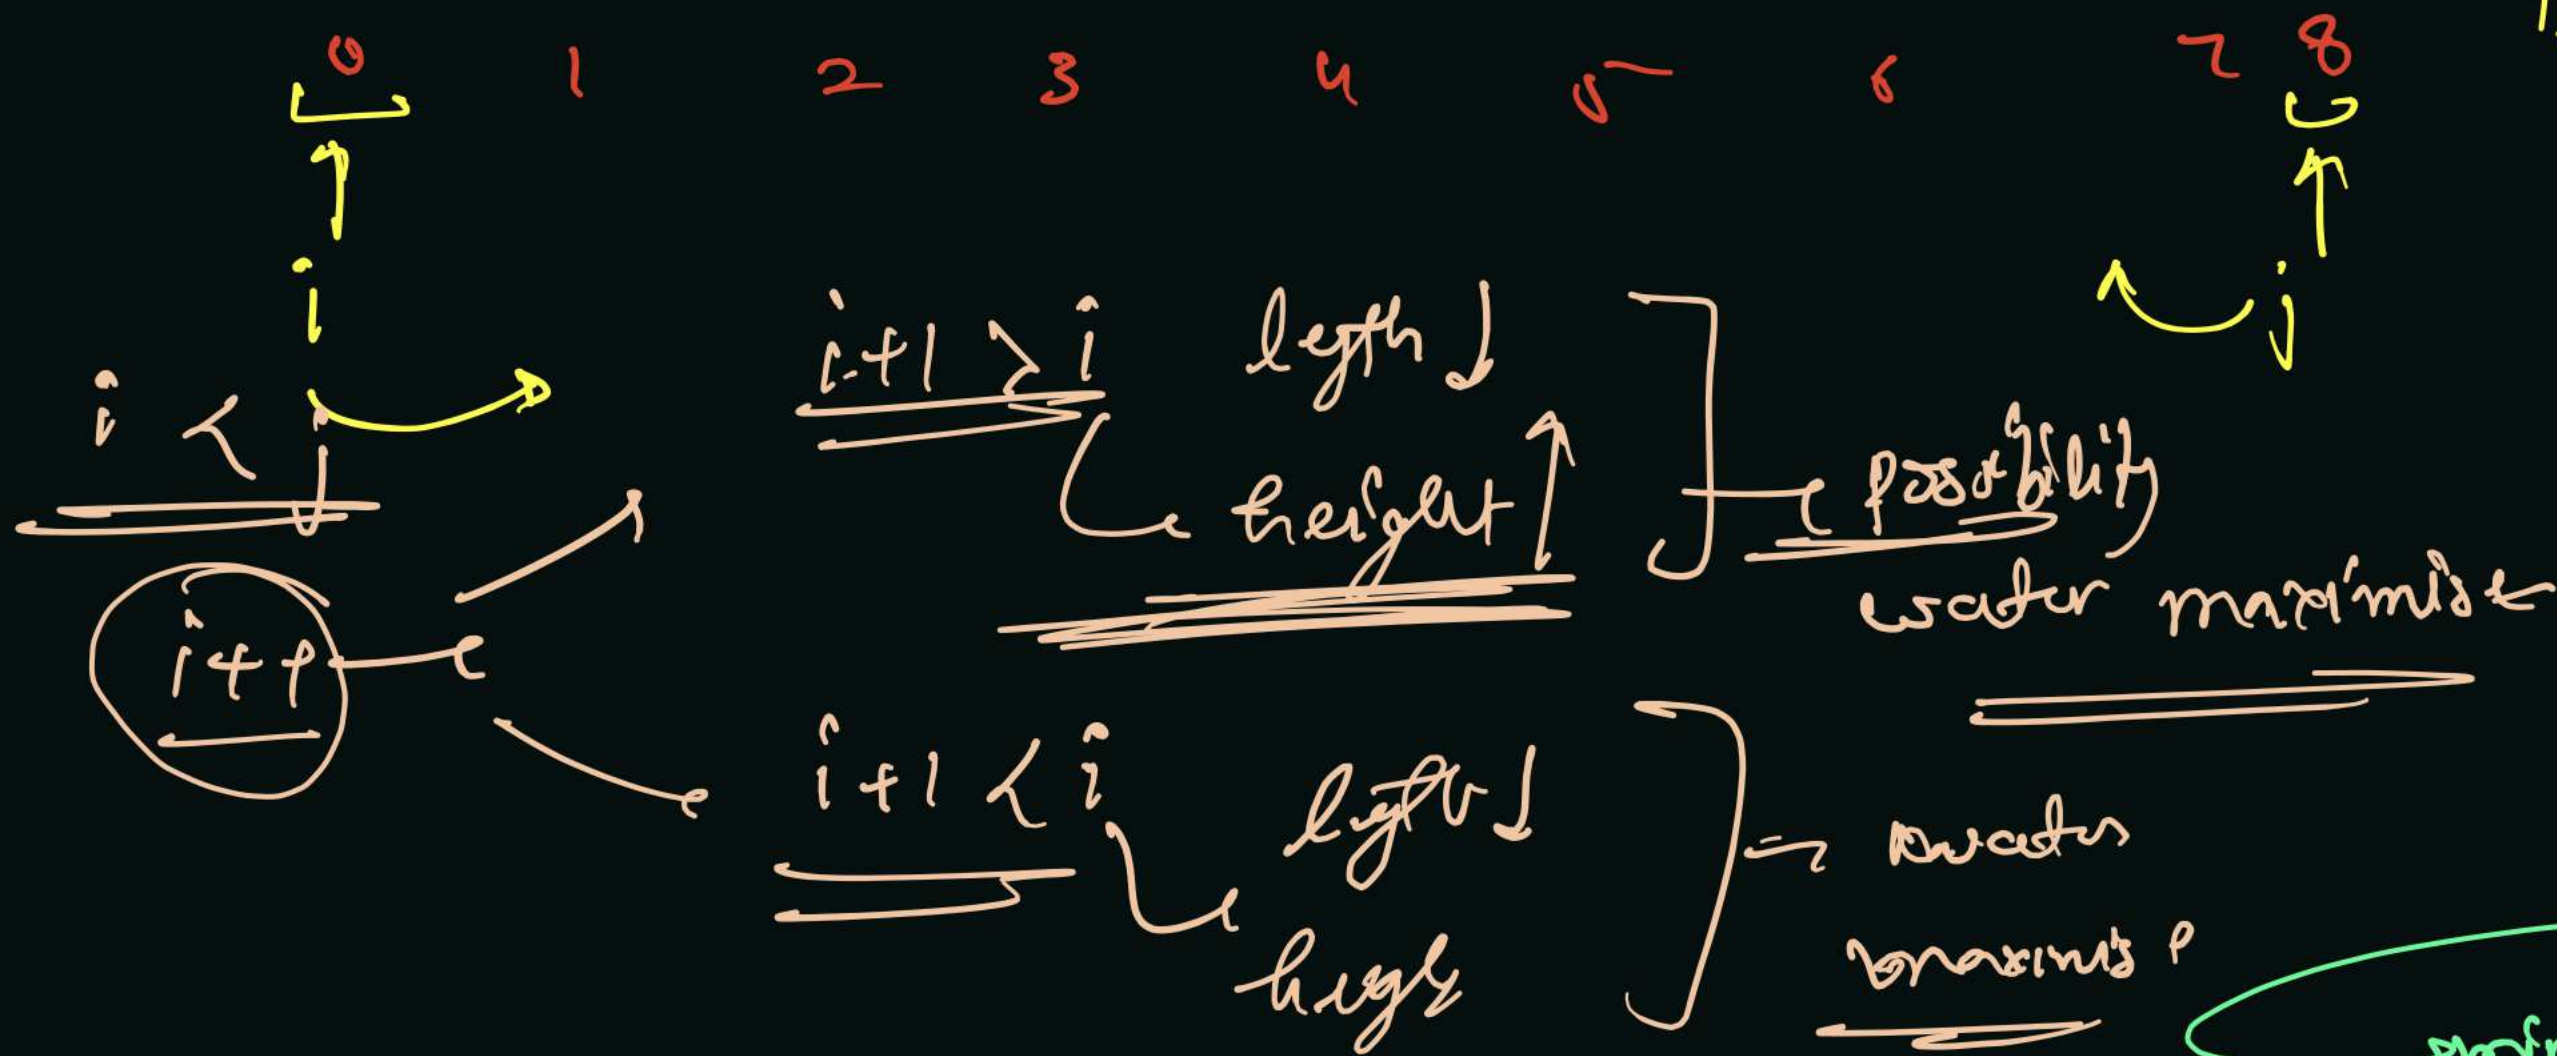 0 1 2 3 4 5 6 7 8
i j
i+1 > i legth ↓
i < j
height ↑ possibility
water maximise
i++
i+1 < i legth ↓
water
maximis